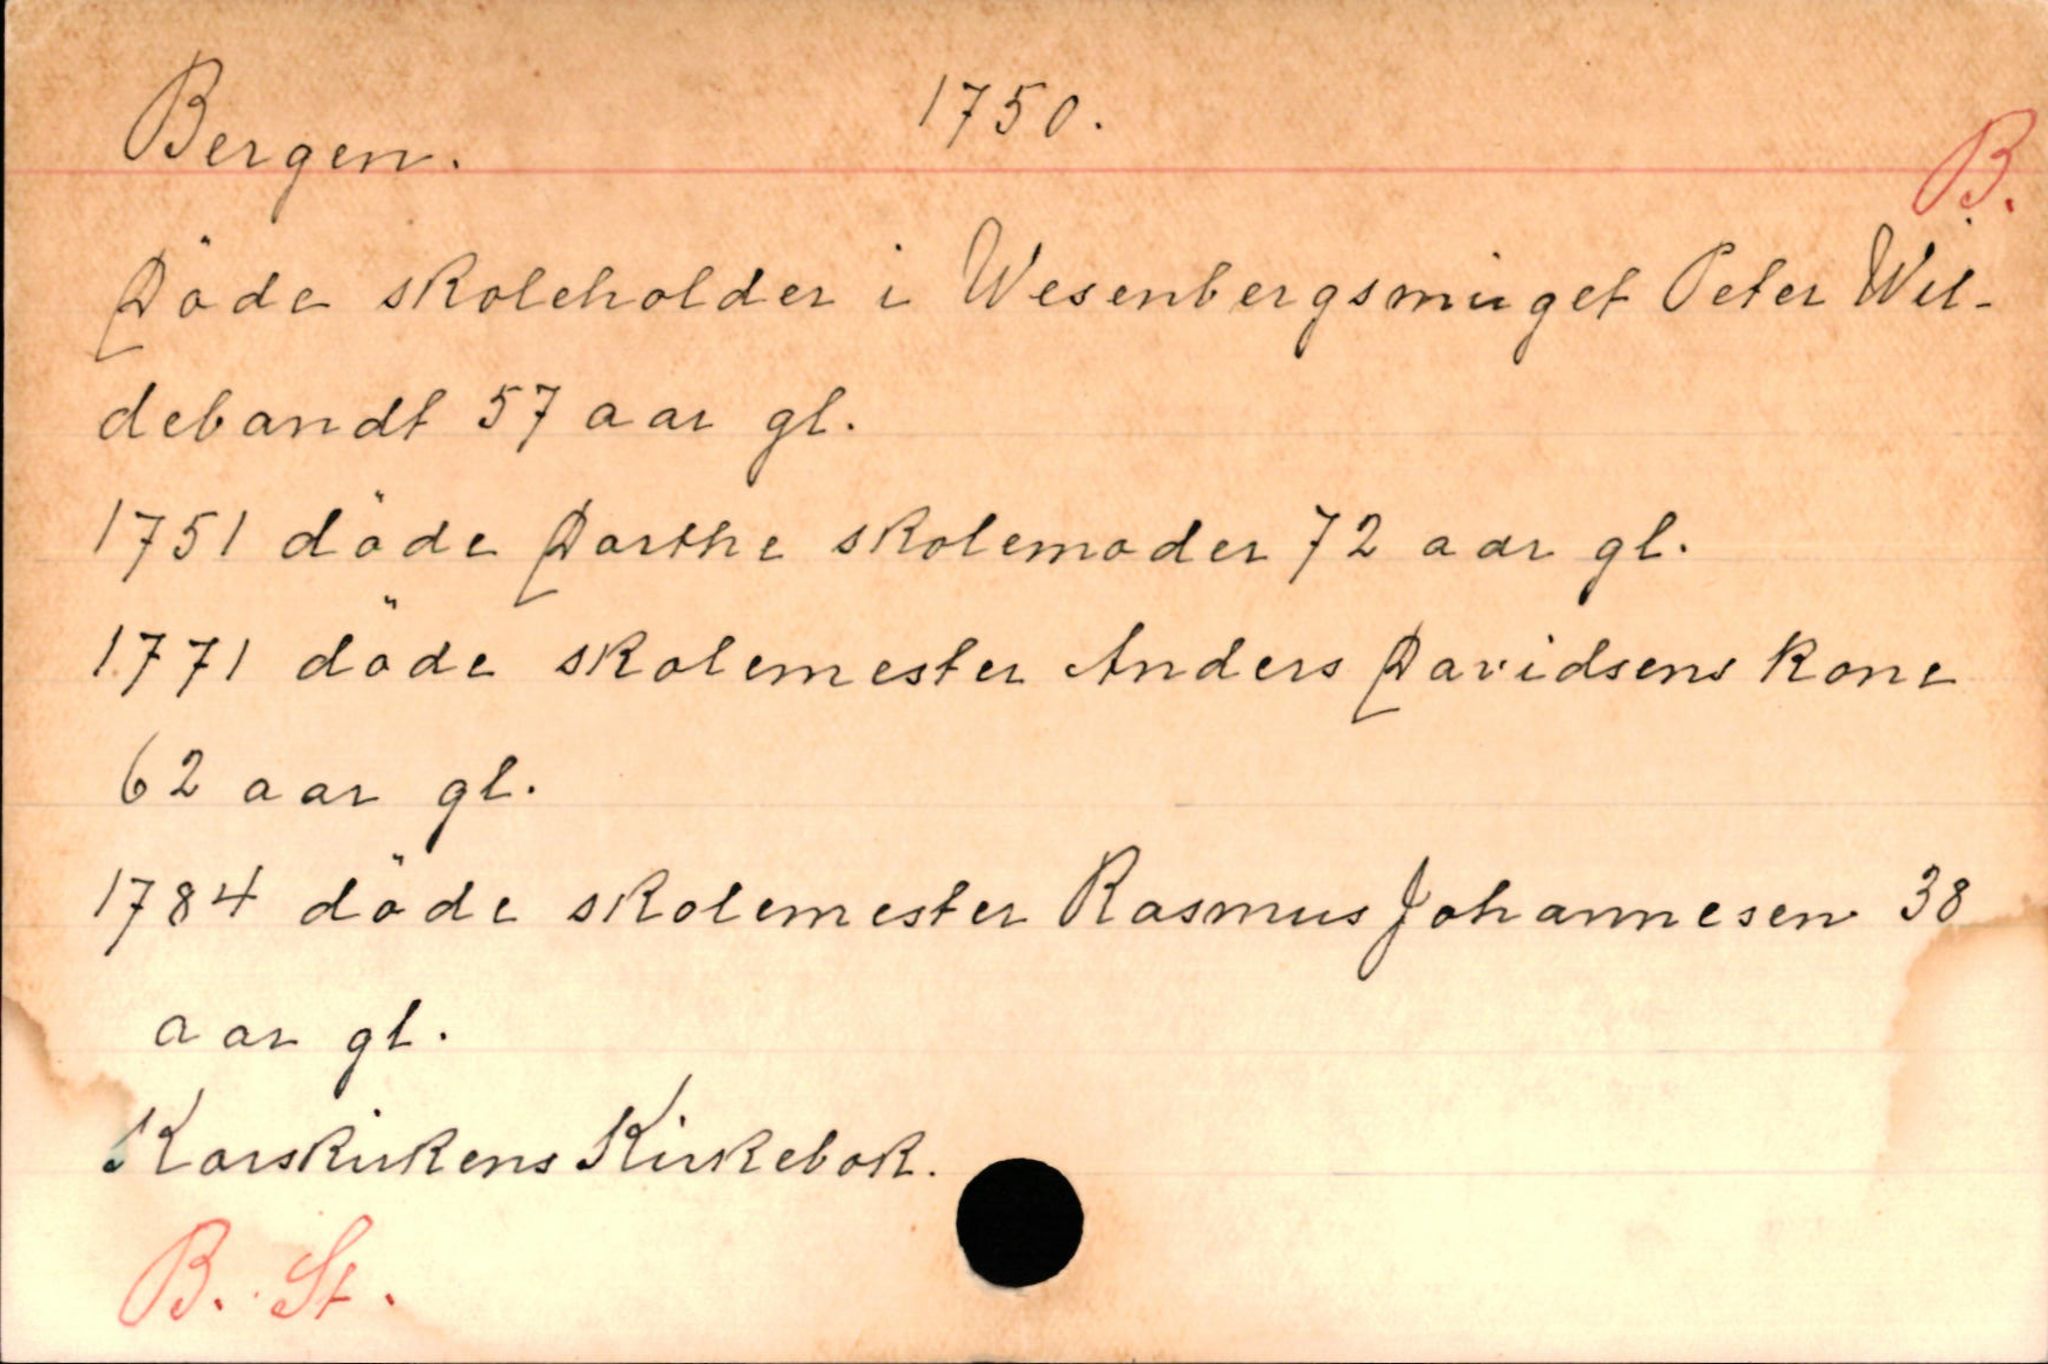 Bergen. 1750.
B.
Döde skoleholder i Wesenbergsmuget Peter Wil-
debandt 57 aar gl.
1751 döde Dorthe skolemoder 72 aar gl.
1771 döde skolemester Anders Davidsens kone
62 aar gl.
1784 döde skolemester Rasmus Johannesen 38
aar gl.
Korskirkens Kirkebok.
B. St.